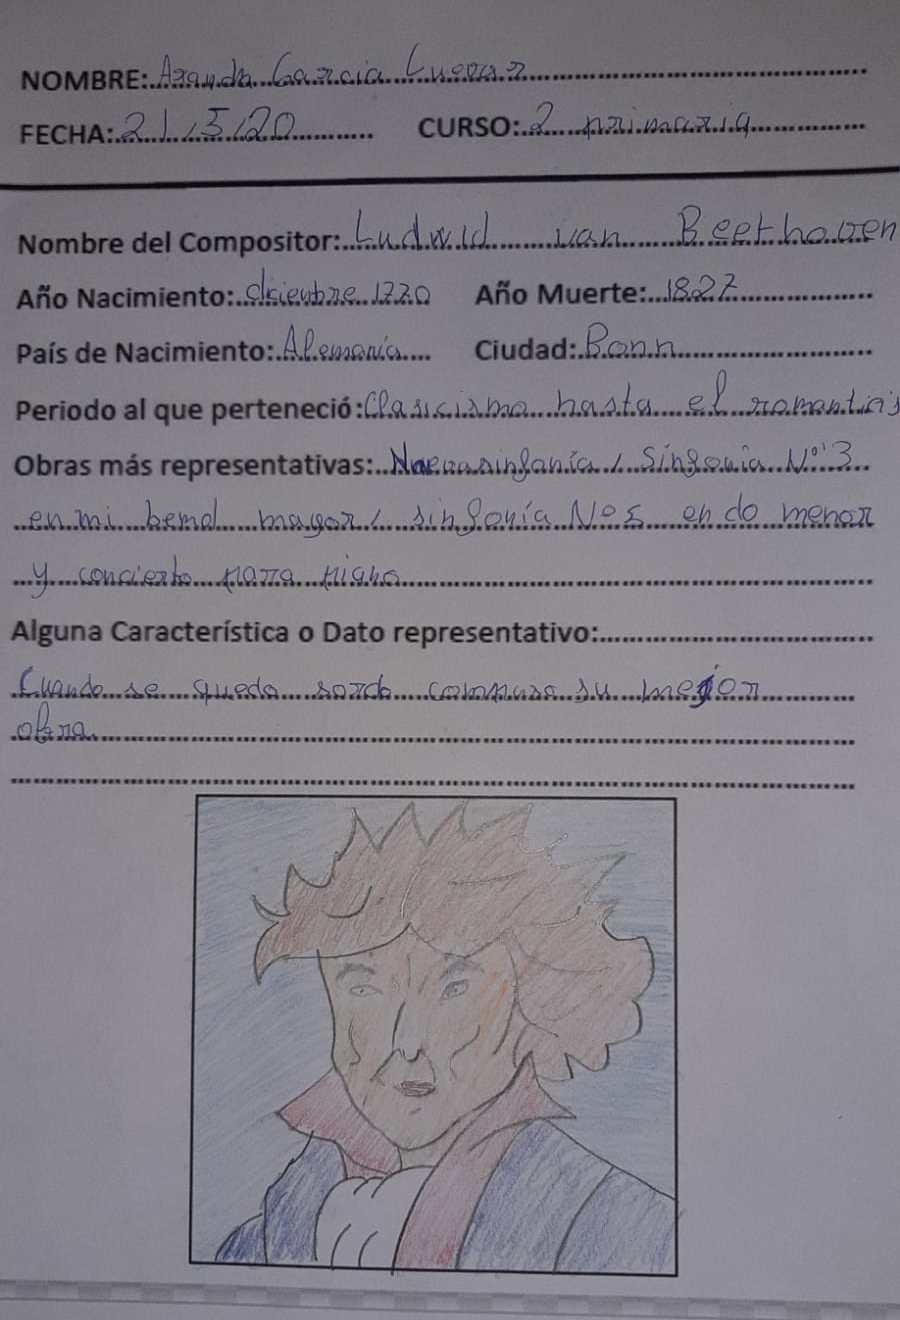 NOMBRE: Aranda Garcia Cuevas
FECHA: 21/5/20 CURSO: 2 primaria
Nombre del Compositor: Ludwid van Beethoven
Año Nacimiento: diciembre 1770 Año Muerte: 1827
País de Nacimiento: Alemania Ciudad: Bonn
Periodo al que perteneció: Clasicismo hasta el romantics
Obras más representativas: sinfonía / Sinfonia Nº 3
en mi bemol mayor / sinfonía Nº 5 en do menor
y concierto para piano
Alguna Característica o Dato representativo:
Cuando se quedo sordo compuso su mejor
obra